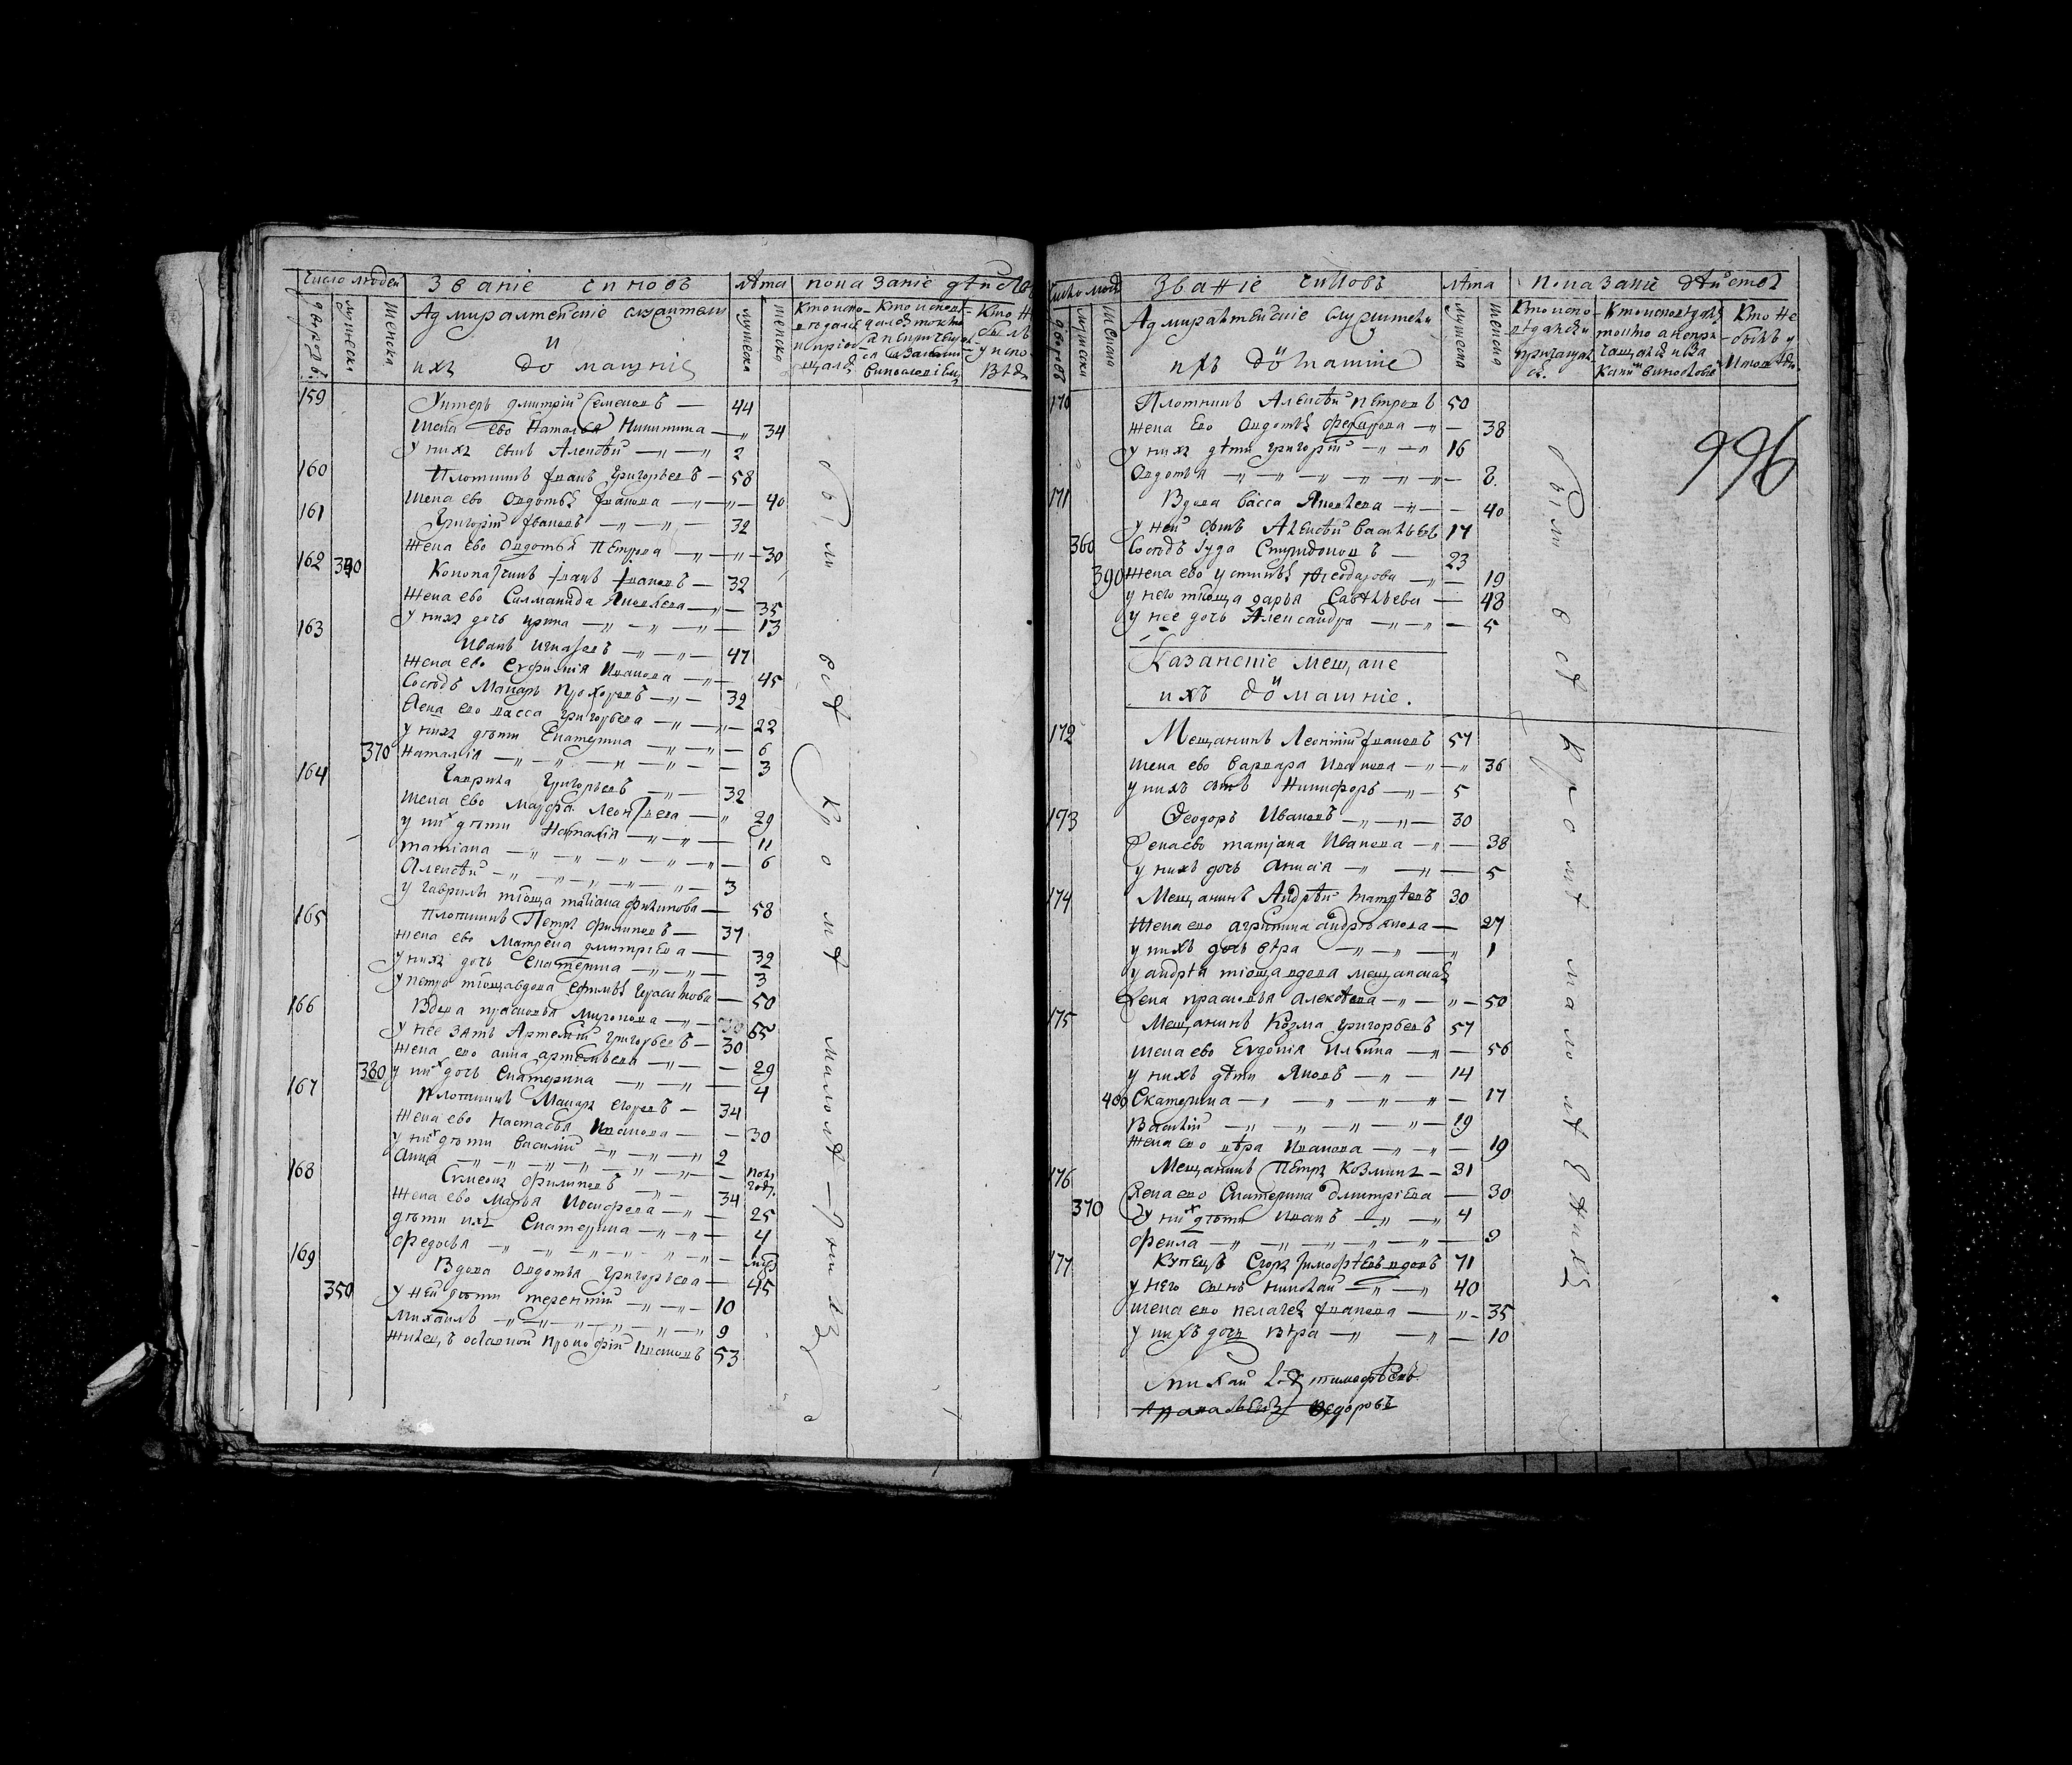 Число людей
Званiе чиновъ
Лѣта
показанiе дѣйство
дворовъ.
мужеска
женска
Адмиралтейскiе служители
и
ихъ домашнiе
мужеска
женска
159 Унтеръ Дмитрiй Семеновъ — 44
Жена ево Наталья Никитина — „ 34
у нихъ сынъ Алексѣй — „ — „ 2
160 Плотникъ Iванъ Григорьевъ — 58
Жена ево Овдотья Iванова — „ — „ — 40
161 Григорiй Iвановъ — „ — „ — 32
Жена ево Овдотья Петрова — „ — „ — 30
162 340 Конопатчикъ Iванъ Iвановъ — 32
Жена ево Саламанида Яковлева — „ — 35
у нихъ дочь Ирина — „ — „ — „ — 13
163 Иванъ Игнатьевъ — „ — „ — 47
Жена ево Евфимiя Иванова — „ — 45
Сосѣдъ Макаръ Прохоровъ — „ — 32
Жена ево васса Григорьева — „ — „ — 22
у нихъ дѣти Екатерина — „ — „ — 6
370 Наталiя — „ — „ — „ — „ — 3
164 Гаврила Григорьевъ — „ — 32
Жена ево Марфа Леонтьева — „ 29
у них дѣти Наталiя — „ — „ — 11
татiана — „ — „ — „ — „ — „ — 6
Алексѣй — „ — „ — „ — „ — „ — 3
у Гаврилы тіоща татiана филипова — 58
165 Плотникъ Петръ Филиповъ — 37
жена ево Матрена дмитрiева — 32
у нихъ дочь Екатерина — „ — „ — 3
у петра тіоща вдова Ефимья Герасимова — 50
166 Вдова прасковья Миронова — „ — 65
у нее зять Артемiй Григорьевъ — 30
Жена ево анна артемьева — „ — 29
380 у них дочь Екатерина — „ — „ — 4
167 Плотникъ Макаръ Егоровъ — 34
Жена ево Настасья Иванова — — 30
у них дѣти Василiй — „ — „ — „ 2
Анна — „ — „ — „ — „ — „ — „ — пол года
168 Симеонъ Филиповъ — „ — 34
Жена ево Марья Иосифова — „ — 25
дѣти ихъ Екатерина — „ — „ — 4
Федосья — „ — „ — „ — „ — „ — 1
169 Вдова Овдотья Григорьева — 45
350 у ней дѣти терентiй — „ — „ — 10
Михаилъ — „ — „ — „ — „ — „ 9
Жилецъ Прокофiй Ивановъ 53
были всѣ кромѣ малолѣтнихъ
Число люд
Званiе чиновъ
Лѣта
показанiе дѣйствъ
дворовъ
мужески
женска
Адмиралтейскiе служители
и
ихъ домашнiе
мужеска
женска
996
170 Плотникъ Алексѣй петровъ 50
жена ево Овдотья — „ — 38
у нихъ дѣти григорiй — „ — „ 16
Овдотья — „ — „ — „ — „ — „ — 8.
171 Вдова васса Яковлева — „ — — 40
у ней сынъ Алексѣй васильевъ 17
360 Сосѣдъ Iуда Спиридоновъ — 23
390 Жена ево устинья Ѳеодорова — „ — 19
у него тіоща дарья Савельева — 48
у нее дочь Александра — „ — „ — 5
Казанскiе мещане
и
ихъ домашнiе.
172 Мещанинъ Леонтiй Iвановъ 57
жена ево варвара Иванова — „ — „ 36
у нихъ сынъ Никифоръ — „ — 5
173 Ѳеодоръ Ивановъ — „ — „ — 30
Жена ево татiана Иванова — „ — 38
у нихъ дочь Анисiя — „ — „ — 5
174 Мещанинъ Андрѣй матвѣевъ 30
Жена ево агрипина андреянова — 27
у нихъ дочь вѣра — „ — „ — „ 1
у андрѣя тіоща вдова мещанская
Жена прасковья алексѣева — „ — „ — 50
175 Мещанинъ Козма григорьевъ 57
Жена ево Евдокiя Ильина — „ — 56
у нихъ дѣти Яковъ — „ — 14
400 Екатерина — „ — „ — „ — „ — 17
Василiй — „ — „ — „ — „ — 19
Жена ево вѣра Иванова — „ — „ — 19
176 Мещанинъ Петръ Козминъ — 31
Жена ево Екатерина дмитрiева — 30
370 у них дѣти Иванъ — „ — „ 4
Фекла — „ — „ — „ — „ — „ — 9
177 Купецъ Егоръ Тимофѣевъ вдовъ 71
у него сынъ николай — „ — „ 40
Жена ево пелагея Iванова — „ — 35
у нихъ дочь вѣра — „ — „ — 10
были всѣ кромѣ малолѣтнихъ